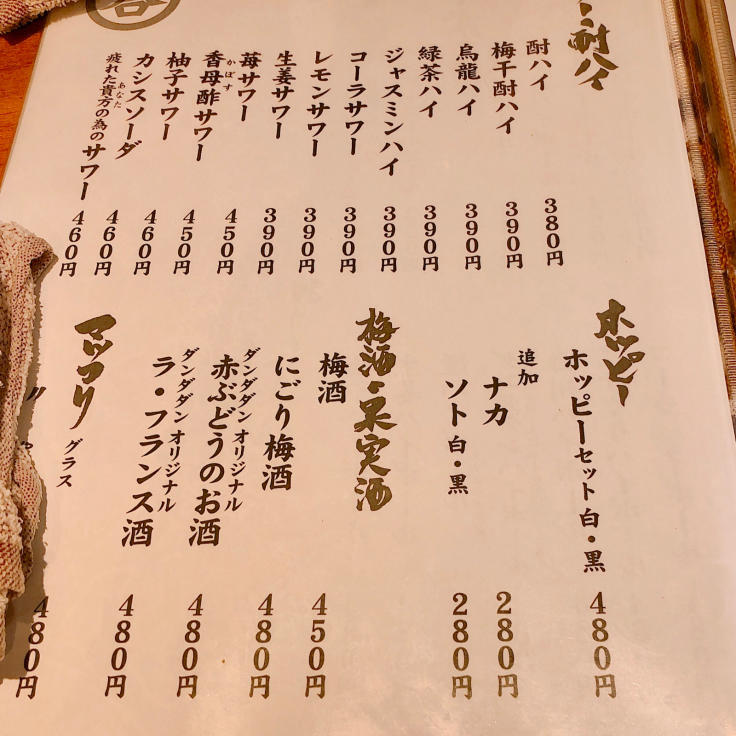 酎ハイ
酎ハイ 380円
梅干酎ハイ 390円
烏龍ハイ 390円
緑茶ハイ 390円
ジャスミンハイ 390円
コーラサワー 390円
レモンサワー 390円
生姜サワー 390円
苺サワー 450円
かぼす
香母酢サワー 450円
柚子サワー 460円
カシスソーダ 460円
あなた
疲れた貴方の為のサワー 460円
ホッピー
ホッピーセット 白・黒 480円
追加
ナカ 280円
ソト 白・黒 280円
梅酒・果実酒
梅酒 450円
にごり梅酒 480円
ダンダダン オリジナル
赤ぶどうのお酒 480円
ダンダダン オリジナル
ラ・フランス酒 480円
マッコリ
グラス 480円
〃